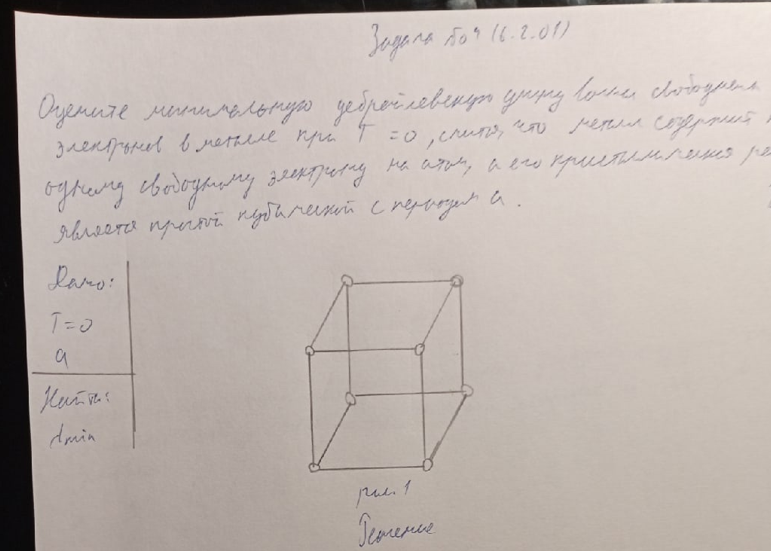 Задача №4 (6.2.01)
Оцените минимальную дебройлевскую длину волны свободных
электронов в металле при T = 0, считая, что металл содержит по
одному свободному электрону на атом, а его кристаллическая ре
является простой кубической с периодом a.
Дано:
T = 0
a
Найти:
λmin
рис. 1
Решение